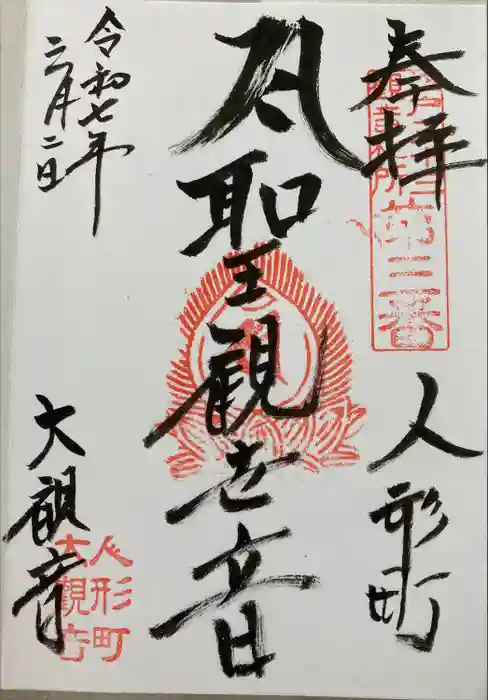 奉拝
人形町
聖観世音
令和七年
二月二日
大観音
第三番
人形町
大観音